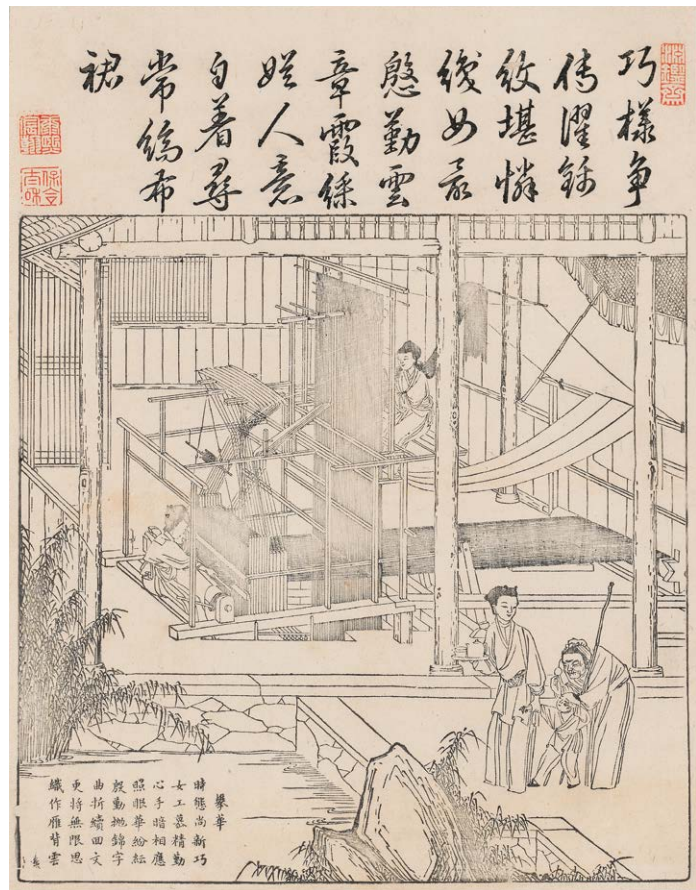 淵鑒齋
巧樣争
傳濯錦
紋堪憐
織女最
慇勤雲
章霞綵
娛人意
自着尋
常縞布
裙
康熙宸翰
保合太和
攀華
時態尚新巧
女工慕精勤
心手暗相應
照眼華紛紜
殷勤挑錦字
曲折續回文
更將無限思
織作雁背雲